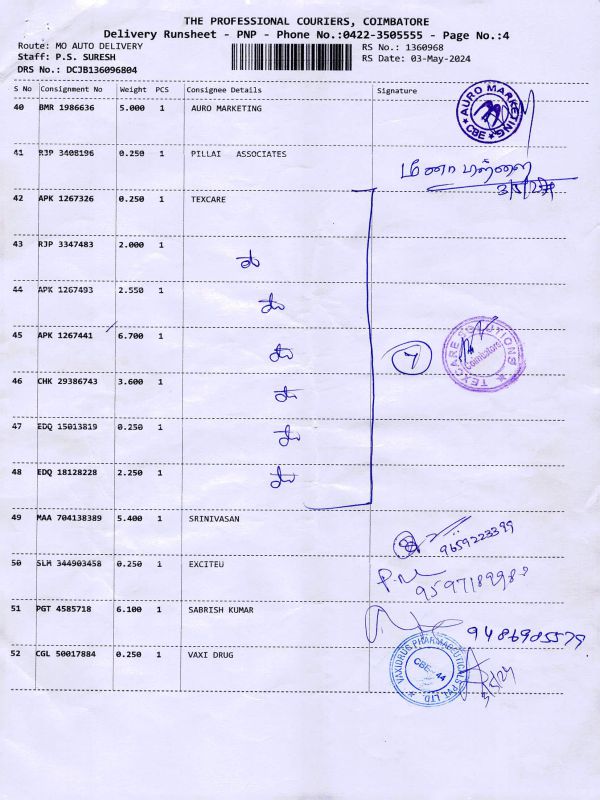 THE PROFESSIONAL COURIERS, COIMBATORE
Delivery Runsheet - PNP - Phone No.:0422-3505555 - Page No.:4
Route: MO AUTO DELIVERY RS No.: 1360968
Staff: P.S. SURESH RS Date: 03-May-2024
DRS No.: DCJB136096804
S No Consignment No Weight PCS Consignee Details Signature
40 BMR 1986636 5.000 1 AURO MARKETING
AURO MARKETING * CBE *
41 RJP 3408196 0.250 1 PILLAI ASSOCIATES
மீனா பிள்ளை
42 APK 1267326 0.250 1 TEXCARE
43 RJP 3347483 2.000 1
44 APK 1267493 2.550 1
45 APK 1267441 6.700 1
7
TEXCARE SOLUTIONS * Coimbatore
46 CHK 29386743 3.600 1
47 EDQ 15013819 0.250 1
48 EDQ 18128228 2.250 1
49 MAA 704138389 5.400 1 SRINIVASAN
9659223399
50 SLM 344903458 0.250 1 EXCITEU
51 PGT 4585718 6.100 1 SABRISH KUMAR
9486985579
52 CGL 50017884 0.250 1 VAXI DRUG
VAXIDRUG PHARMACEUTICALS PVT. LTD. CBE - 44